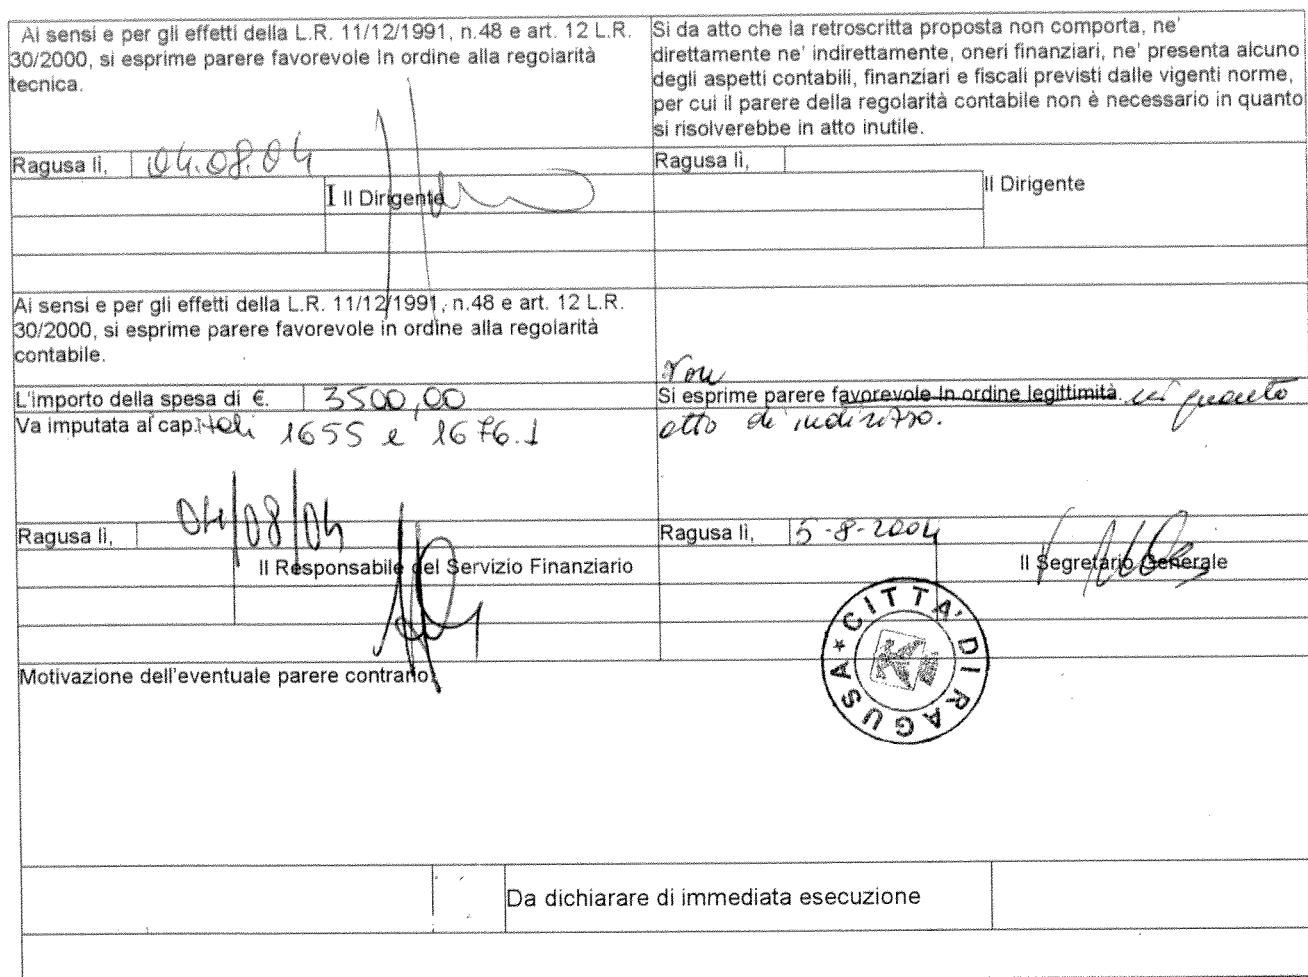 Ai sensi e per gli effetti della L.R. 11/12/1991, n.48 e art. 12 L.R.
30/2000, si esprime parere favorevole In ordine alla regolarità
tecnica.
Ragusa lì, 04.08.04
I Il Dirigente
Si da atto che la retroscritta proposta non comporta, ne'
direttamente ne' indirettamente, oneri finanziari, ne' presenta alcuno
degli aspetti contabili, finanziari e fiscali previsti dalle vigenti norme,
per cui il parere della regolarità contabile non è necessario in quanto
si risolverebbe in atto inutile.
Ragusa lì,
Il Dirigente
Ai sensi e per gli effetti della L.R. 11/12/1991, n.48 e art. 12 L.R.
30/2000, si esprime parere favorevole in ordine alla regolarità
contabile.
L'importo della spesa di €. 3500,00
Va imputata al cap. 1655 e 1676.1
Ragusa lì, 04/08/04
Il Responsabile del Servizio Finanziario
Non
Si esprime parere favorevole In ordine legittimità in quanto
atto di indirizzo.
Ragusa lì, 5-8-2004
Il Segretario Generale
CITTA' DI RAGUSA
Motivazione dell'eventuale parere contrario:
Da dichiarare di immediata esecuzione